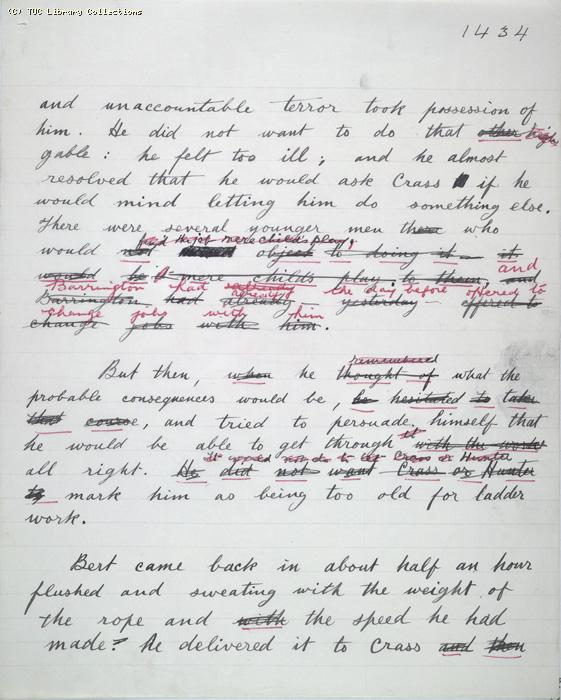 (C) TUC Library Collections
1434
and unaccountable terror took possession of
him. He did not want to do that other high
gable : he felt too ill ; and he almost
resolved that he would ask Crass if he
would mind letting him do something else.
There were several younger men there who
find the job mere child's play,
would not object to doing it - it
would be a mere childs play to them, and and
Barrington had already the day before offered to
Barrington had already yesterday offered to
change jobs with him
change jobs with him.
remembered
But then, when he thought of what the
probable consequences would be, he hesitated to take
that course, and tried to persuade himself that
he would be able to get through it with the work
It would not do to let Crass or Hunter
all right. He did not want Crass or Hunter
to mark him as being too old for ladder
work.
Bert came back in about half an hour
flushed and sweating with the weight of
the rope and with the speed he had
made. He delivered it to Crass and then